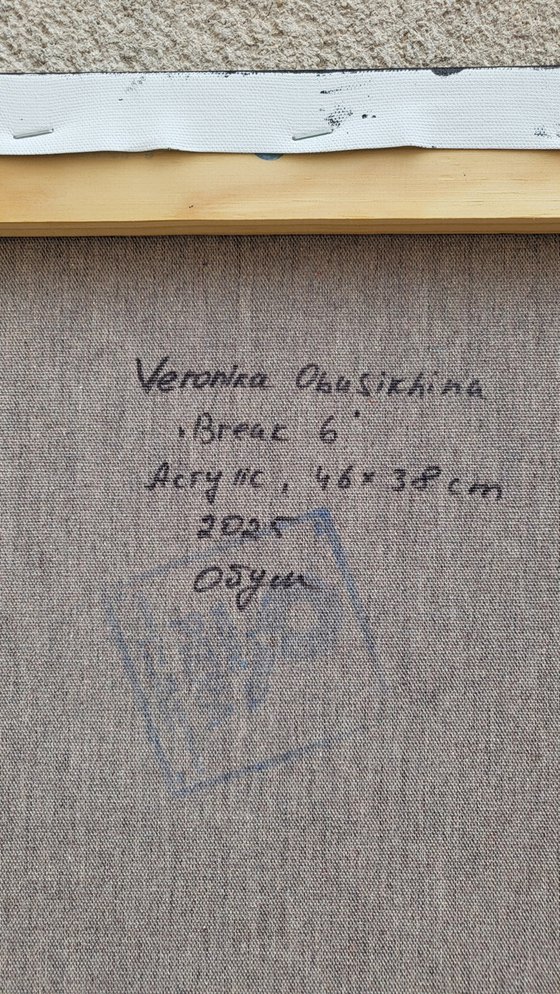 Veronika Obusikhina
"Break 6"
Acrylic, 46 x 38 cm
2025